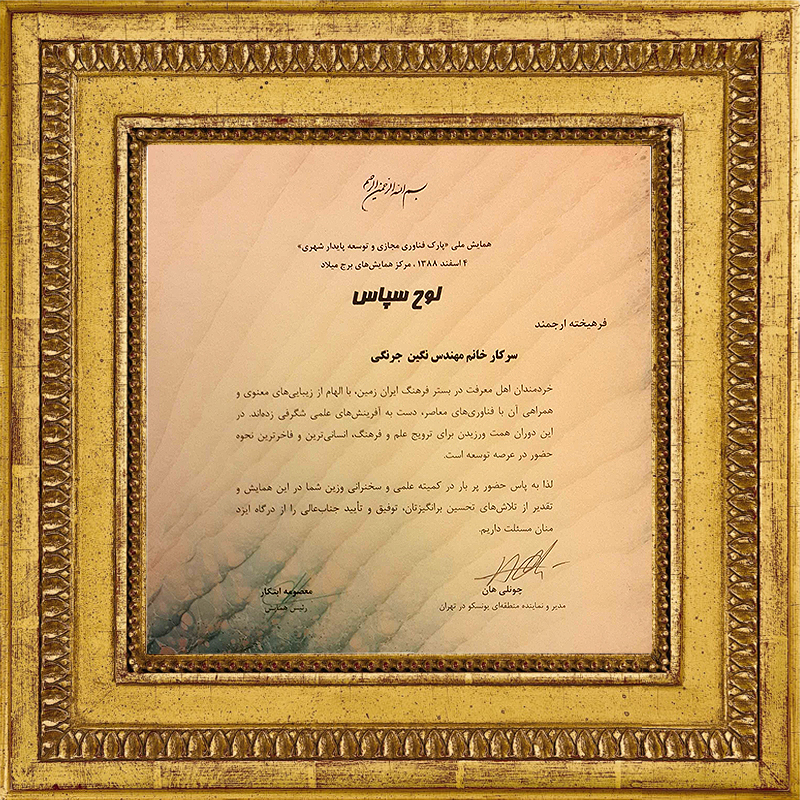 بسم الله الرحمن الرحیم
همایش ملی «پارک فناوری مجازی و توسعه پایدار شهری»
۴ اسفند ۱۳۸۸ ، مرکز همایش‌های برج میلاد
لوح سپاس
فرهیخته ارجمند
سرکار خانم مهندس نگین جرنگی
خردمندان اهل معرفت در بستر فرهنگ ایران زمین، با الهام از زیبایی‌های معنوی و
همراهی آن با فناوری‌های معاصر، دست به آفرینش‌های علمی شگرفی زده‌اند. در
این دوران همت ورزیدن برای ترویج علم و فرهنگ، انسانی‌ترین و فاخرترین نحوه
حضور در عرصه توسعه است.
لذا به پاس حضور پر بار در کمیته علمی و سخنرانی وزین شما در این همایش و
تقدیر از تلاش‌های تحسین برانگیزتان، توفیق و تأیید جناب‌عالی را از درگاه ایزد
منان مسئلت داریم.
چونلی هان
مدیر و نماینده منطقه‌ای یونسکو در تهران
معصومه ابتکار
رئیس همایش